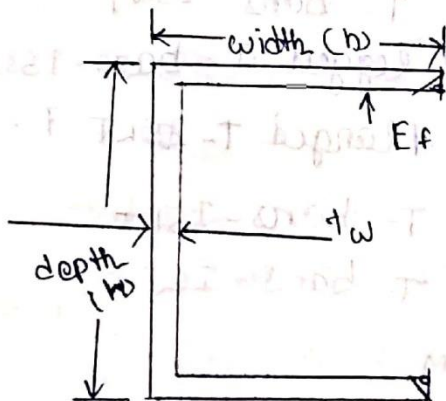 width (b)
Ef
tw
depth
(h)